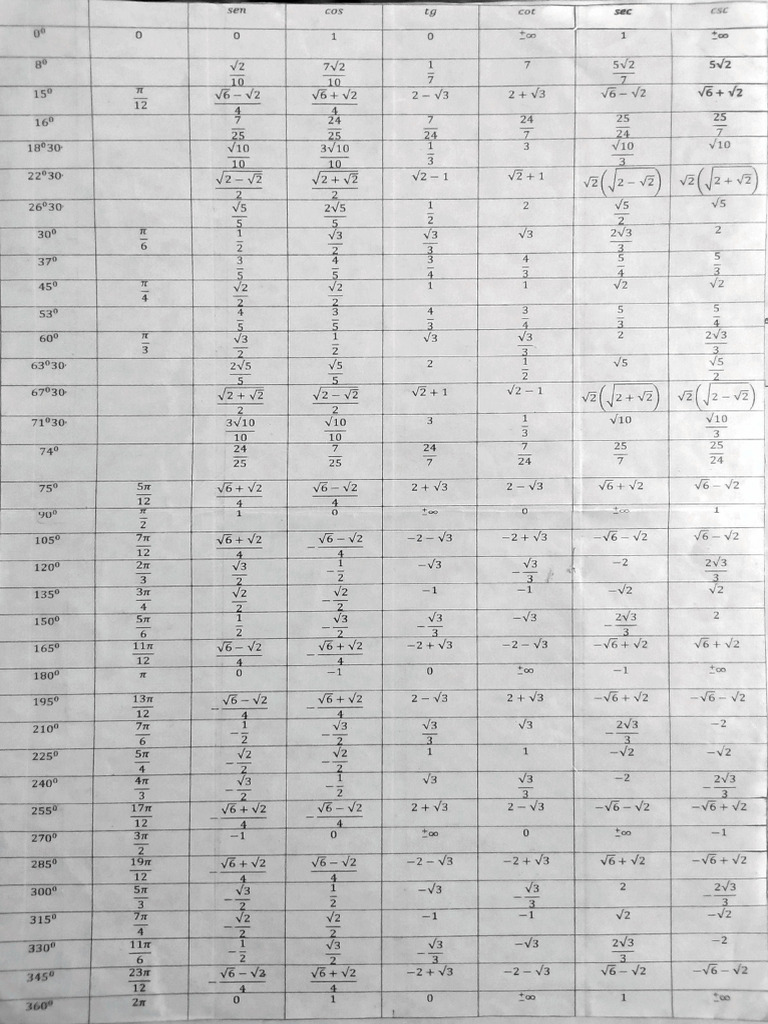 sen cos tg cot sec csc
0⁰ 0 0 1 0 ±∞ 1 ±∞
8⁰ √2/10 7√2/10 1/7 7 5√2/7 5√2
15⁰ π/12 (√6 − √2)/4 (√6 + √2)/4 2 − √3 2 + √3 √6 − √2 √6 + √2
16⁰ 7/25 24/25 7/24 24/7 25/24 25/7
18⁰30· √10/10 3√10/10 1/3 3 √10/3 √10
22⁰30· √(2 − √2)/2 √(2 + √2)/2 √2 − 1 √2 + 1 √2(√(2 − √2)) √2(√(2 + √2))
26⁰30· √5/5 2√5/5 1/2 2 √5/2 √5
30⁰ π/6 1/2 √3/2 √3/3 √3 2√3/3 2
37⁰ 3/5 4/5 3/4 4/3 5/4 5/3
45⁰ π/4 √2/2 √2/2 1 1 √2 √2
53⁰ 4/5 3/5 4/3 3/4 5/3 5/4
60⁰ π/3 √3/2 1/2 √3 √3/3 2 2√3/3
63⁰30· 2√5/5 √5/5 2 1/2 √5 √5/2
67⁰30· √(2 + √2)/2 √(2 − √2)/2 √2 + 1 √2 − 1 √2(√(2 + √2)) √2(√(2 − √2))
71⁰30· 3√10/10 √10/10 3 1/3 √10 √10/3
74⁰ 24/25 7/25 24/7 7/24 25/7 25/24
75⁰ 5π/12 (√6 + √2)/4 (√6 − √2)/4 2 + √3 2 − √3 √6 + √2 √6 − √2
90⁰ π/2 1 0 ±∞ 0 ±∞ 1
105⁰ 7π/12 (√6 + √2)/4 −(√6 − √2)/4 −2 − √3 −2 + √3 −√6 − √2 √6 − √2
120⁰ 2π/3 √3/2 −1/2 −√3 −√3/3 −2 2√3/3
135⁰ 3π/4 √2/2 −√2/2 −1 −1 −√2 √2
150⁰ 5π/6 1/2 −√3/2 −√3/3 −√3 −2√3/3 2
165⁰ 11π/12 (√6 − √2)/4 −(√6 + √2)/4 −2 + √3 −2 − √3 −√6 + √2 √6 + √2
180⁰ π 0 −1 0 ±∞ −1 ±∞
195⁰ 13π/12 −(√6 − √2)/4 −(√6 + √2)/4 2 − √3 2 + √3 −√6 + √2 −√6 − √2
210⁰ 7π/6 −1/2 −√3/2 √3/3 √3 −2√3/3 −2
225⁰ 5π/4 −√2/2 −√2/2 1 1 −√2 −√2
240⁰ 4π/3 −√3/2 −1/2 √3 √3/3 −2 −2√3/3
255⁰ 17π/12 −(√6 + √2)/4 −(√6 − √2)/4 2 + √3 2 − √3 −√6 − √2 −√6 + √2
270⁰ 3π/2 −1 0 ±∞ 0 ±∞ −1
285⁰ 19π/12 −(√6 + √2)/4 (√6 − √2)/4 −2 − √3 −2 + √3 √6 + √2 −√6 + √2
300⁰ 5π/3 −√3/2 1/2 −√3 −√3/3 2 −2√3/3
315⁰ 7π/4 −√2/2 √2/2 −1 −1 √2 −√2
330⁰ 11π/6 −1/2 √3/2 −√3/3 −√3 2√3/3 −2
345⁰ 23π/12 −(√6 − √2)/4 (√6 + √2)/4 −2 + √3 −2 − √3 √6 − √2 −√6 − √2
360⁰ 2π 0 1 0 ±∞ 1 ±∞